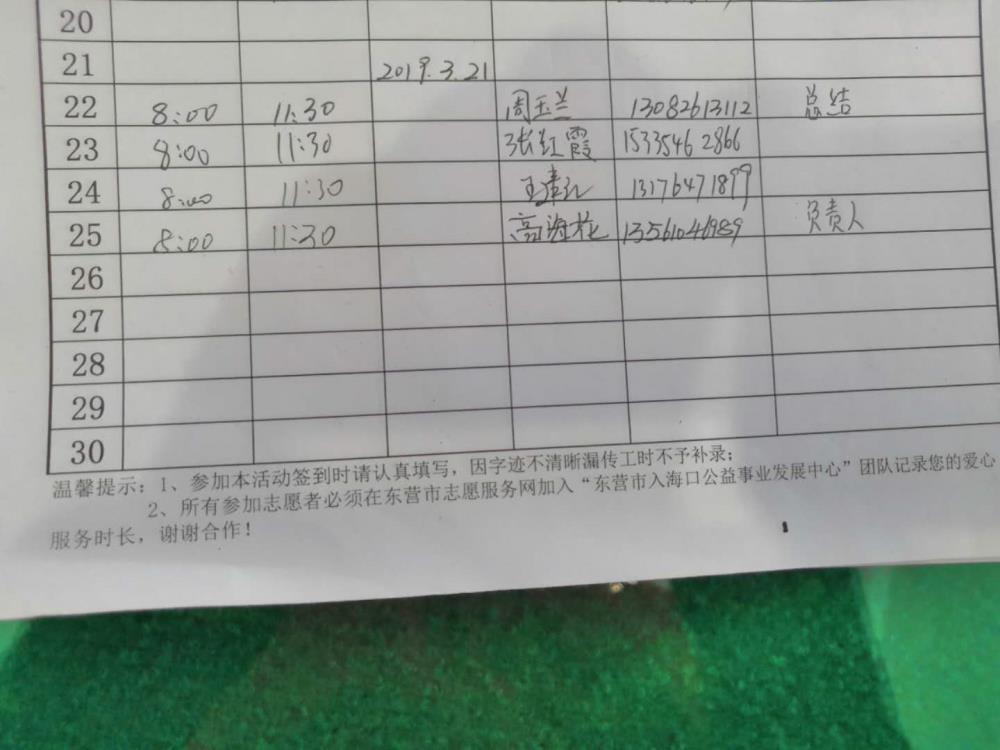 20
21 2019.3.21
22 8:00 11:30 周玉兰 13082613112 总结
23 8:00 11:30 张红霞 15335462866
24 8:00 11:30 王 13176471899
25 8:00 11:30 高海花 13561046989 负责人
26
27
28
29
30
温馨提示：1、参加本活动签到时请认真填写，因字迹不清晰漏传工时不予补录；
2、所有参加志愿者必须在东营市志愿服务网加入“东营市入海口公益事业发展中心”团队记录您的爱心
服务时长，谢谢合作！